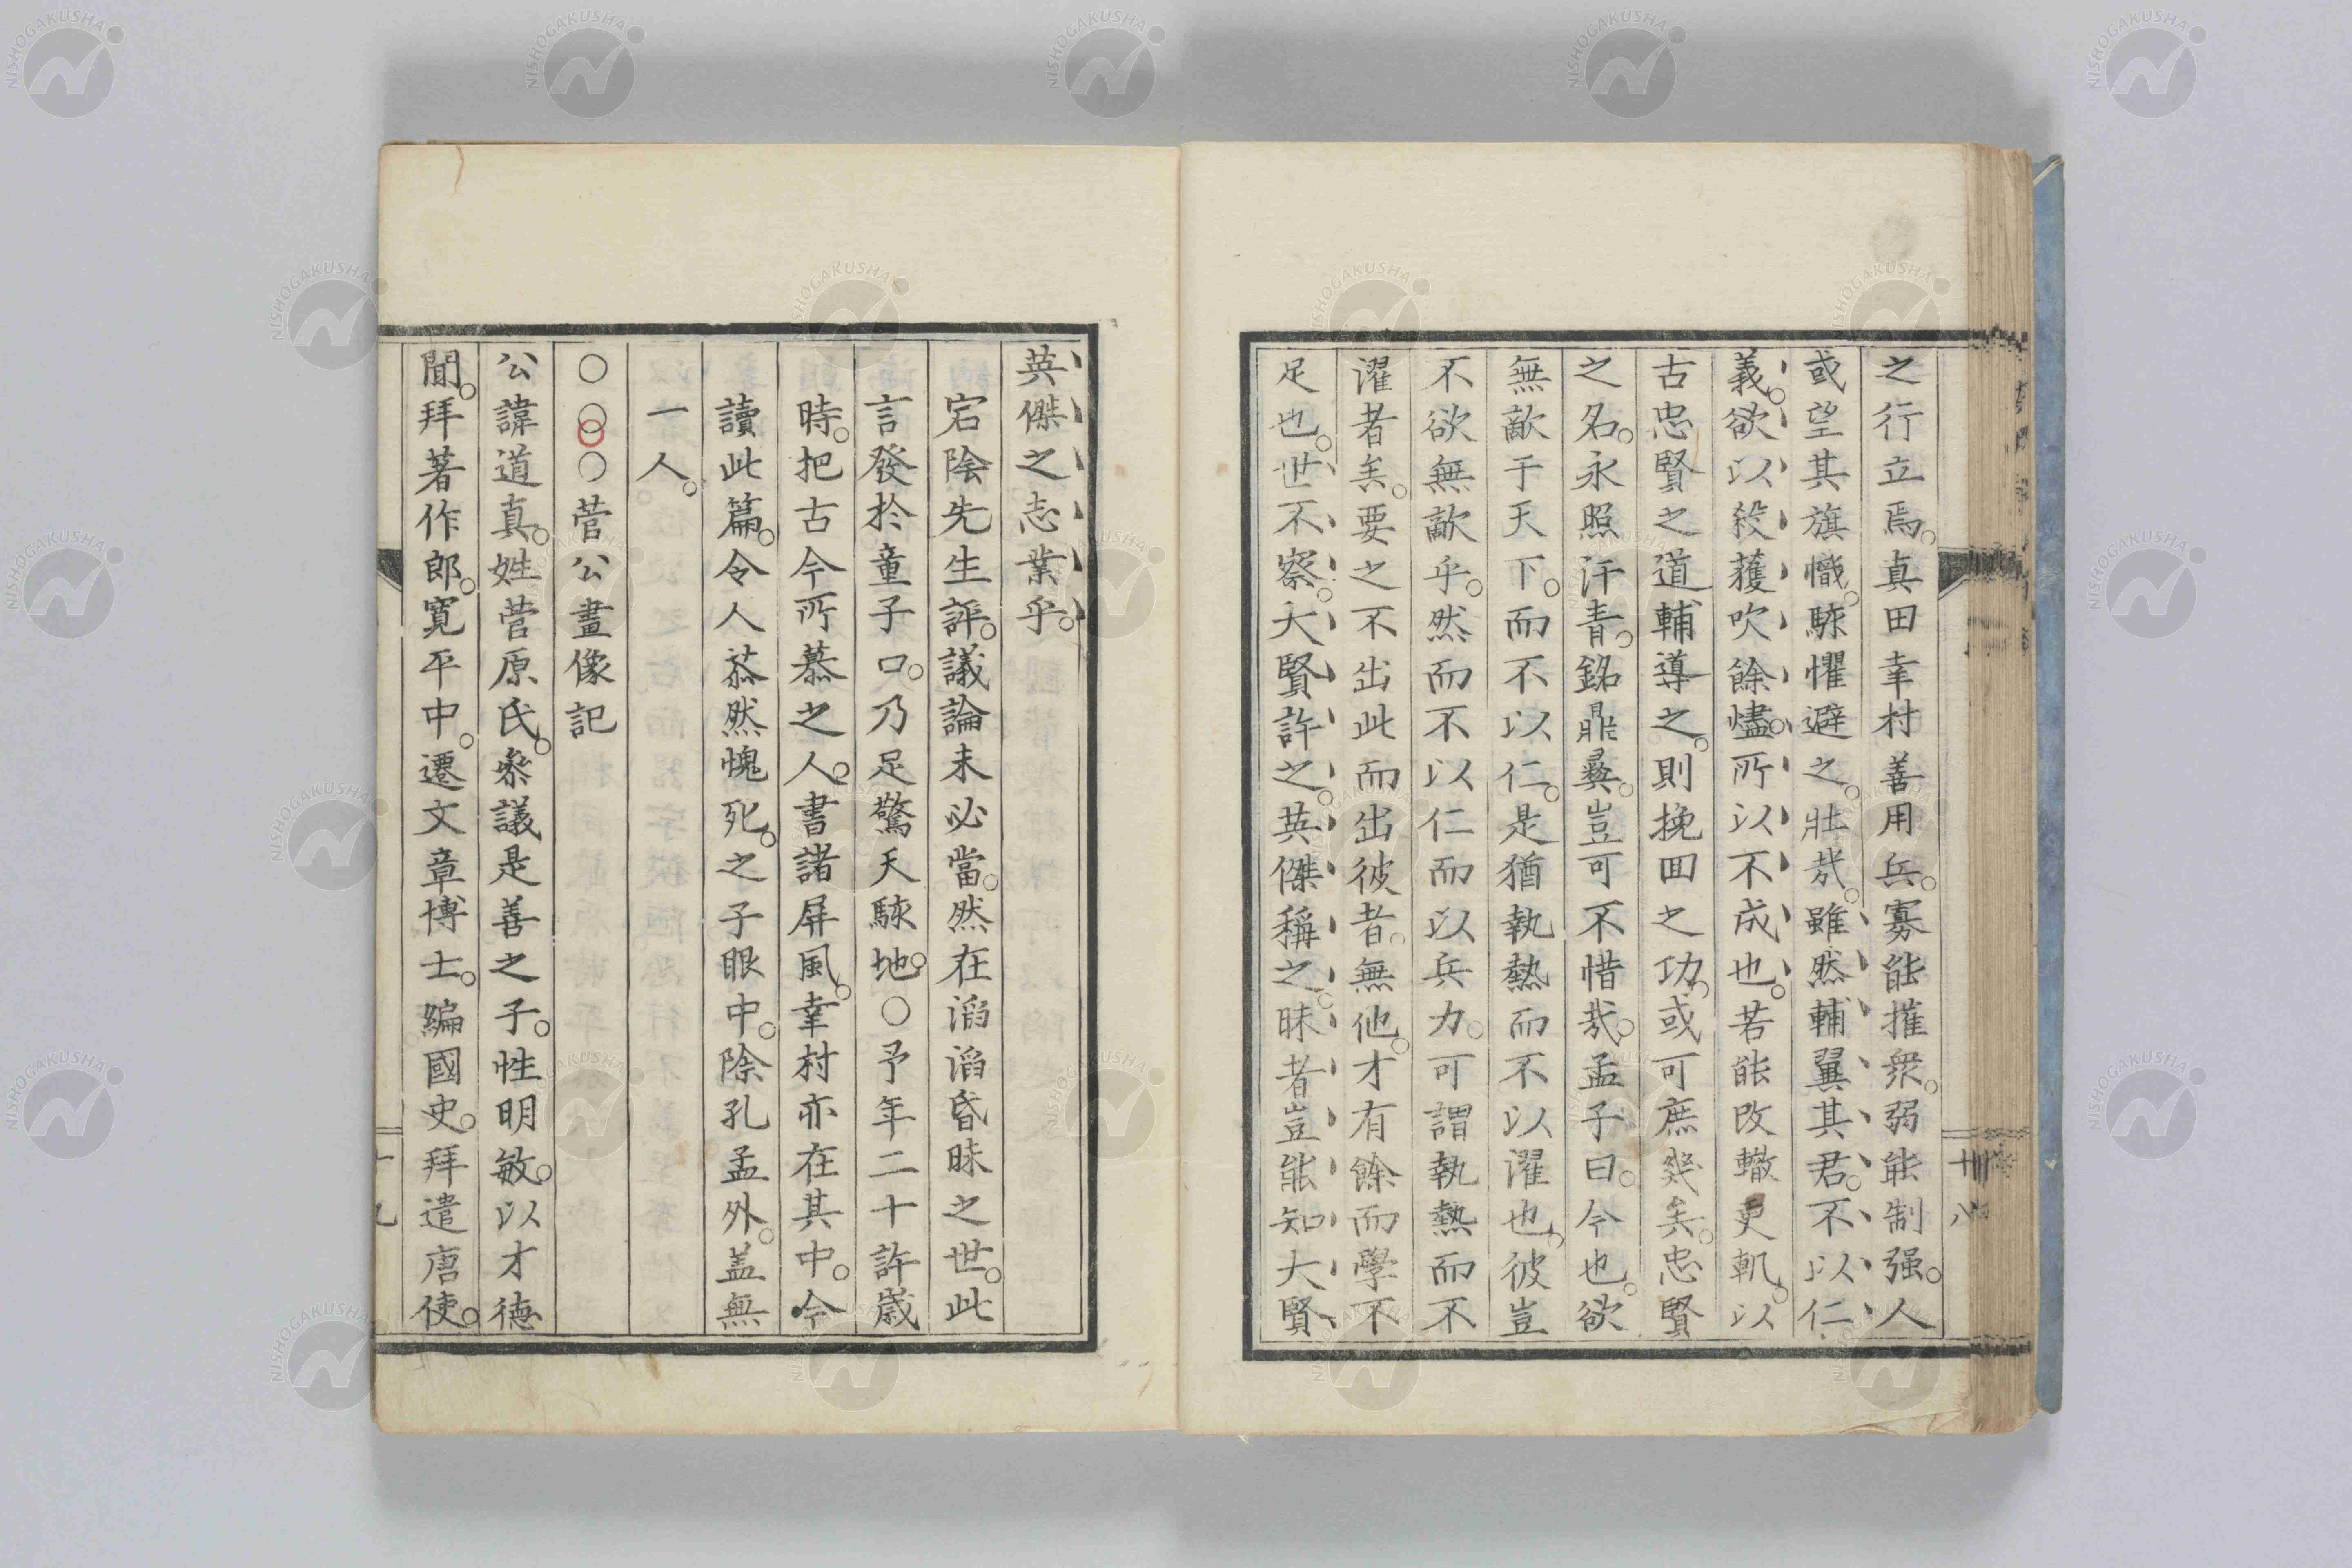 之行立焉。真田幸村善用兵。寡能摧衆。弱能制强。人
或望其旗幟。駭懼避之。壯哉。雖然輔翼其君。不以仁
義。欲以殺獲吹餘燼。所以不成也。若能改轍更軌。以
古忠賢之道輔導之。則挽回之功。或可庶幾矣。忠賢
之名。永照汗青。銘鼎彝。豈可不惜哉。孟子曰。今也。欲
無敵于天下。而不以仁。是猶執熱而不以濯也。彼豈
不欲無敵乎。然而不以仁而以兵力。可謂執熱而不
濯者矣。要之不出此而出彼者。無他。才有餘而學不
足也。世不察。大賢許之。英傑稱之。昧者豈能知大賢
十八
英傑之志業乎。
宕陰先生評。議論未必當。然在滔滔昏昧之世。此
言發於童子口。乃足驚天駭地。○予年二十許歲
時。把古今所慕之人。書諸屏風。幸村亦在其中。今
讀此篇。令人恭然愧死。之子眼中。除孔孟外。盖無
一人。
○○○菅公畫像記
公諱道真。姓菅原氏。參議是善之子。性明敏。以才德
聞。拜著作郎。寛平中。遷文章博士。編國史。拜遣唐使。
十九
NISHOGAKUSHA